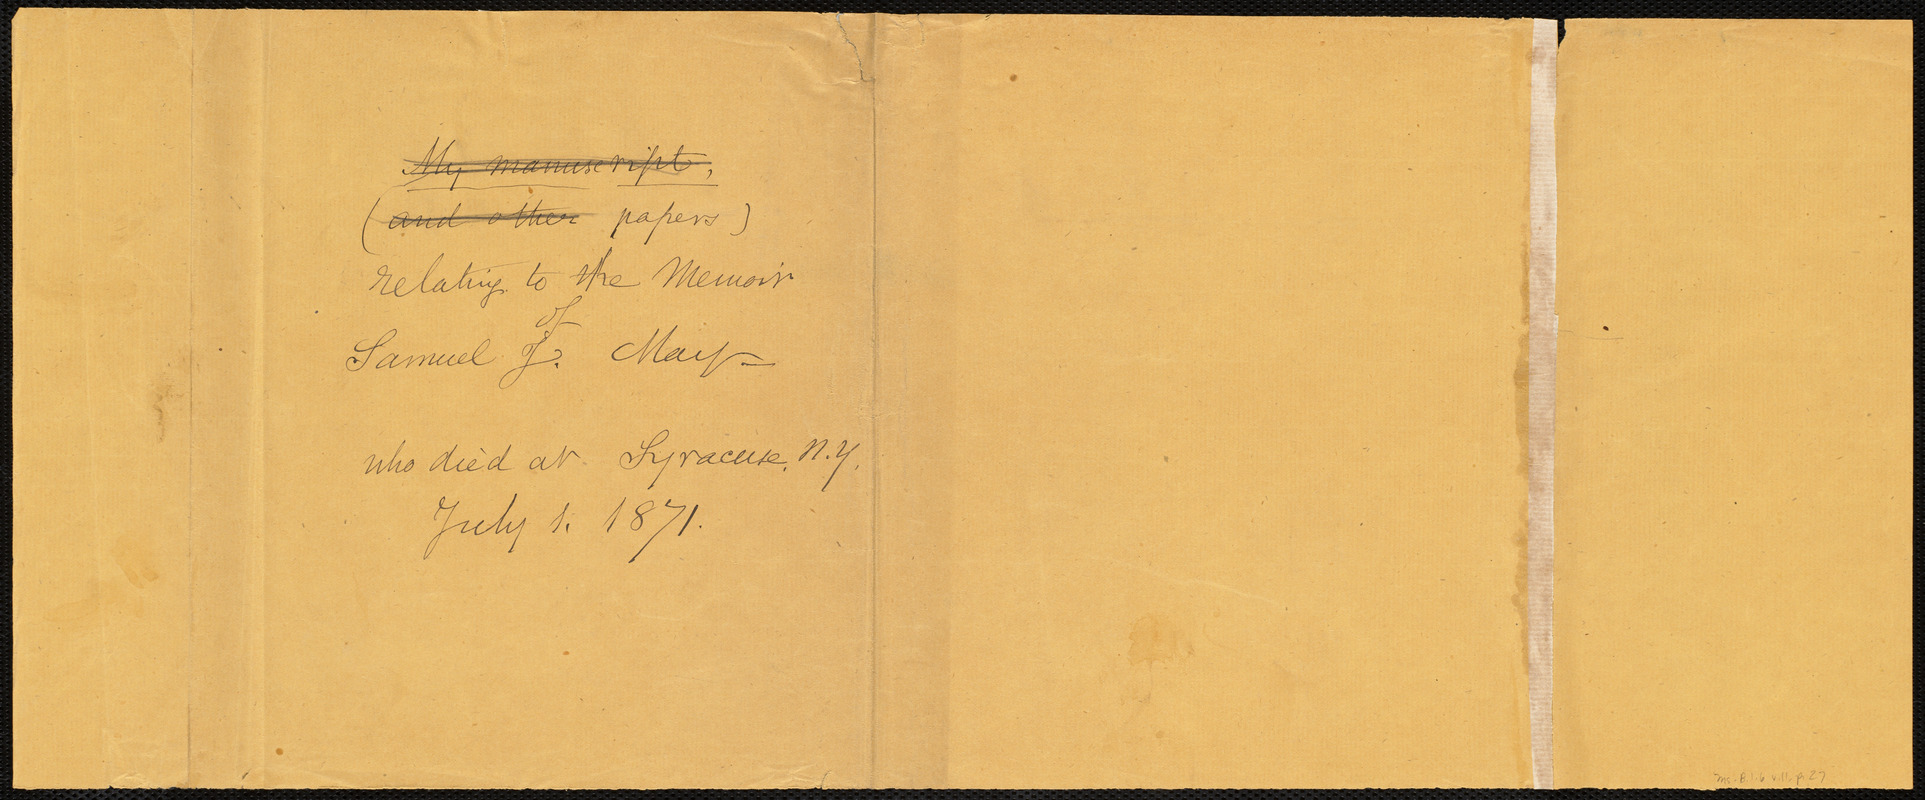 My manuscript,
(and other papers)
relating to the Memoir
of
Samuel J. May—
who died at Syracuse, N.Y.
July 1. 1871.
Ms. B.1.6 v.11, p. 27